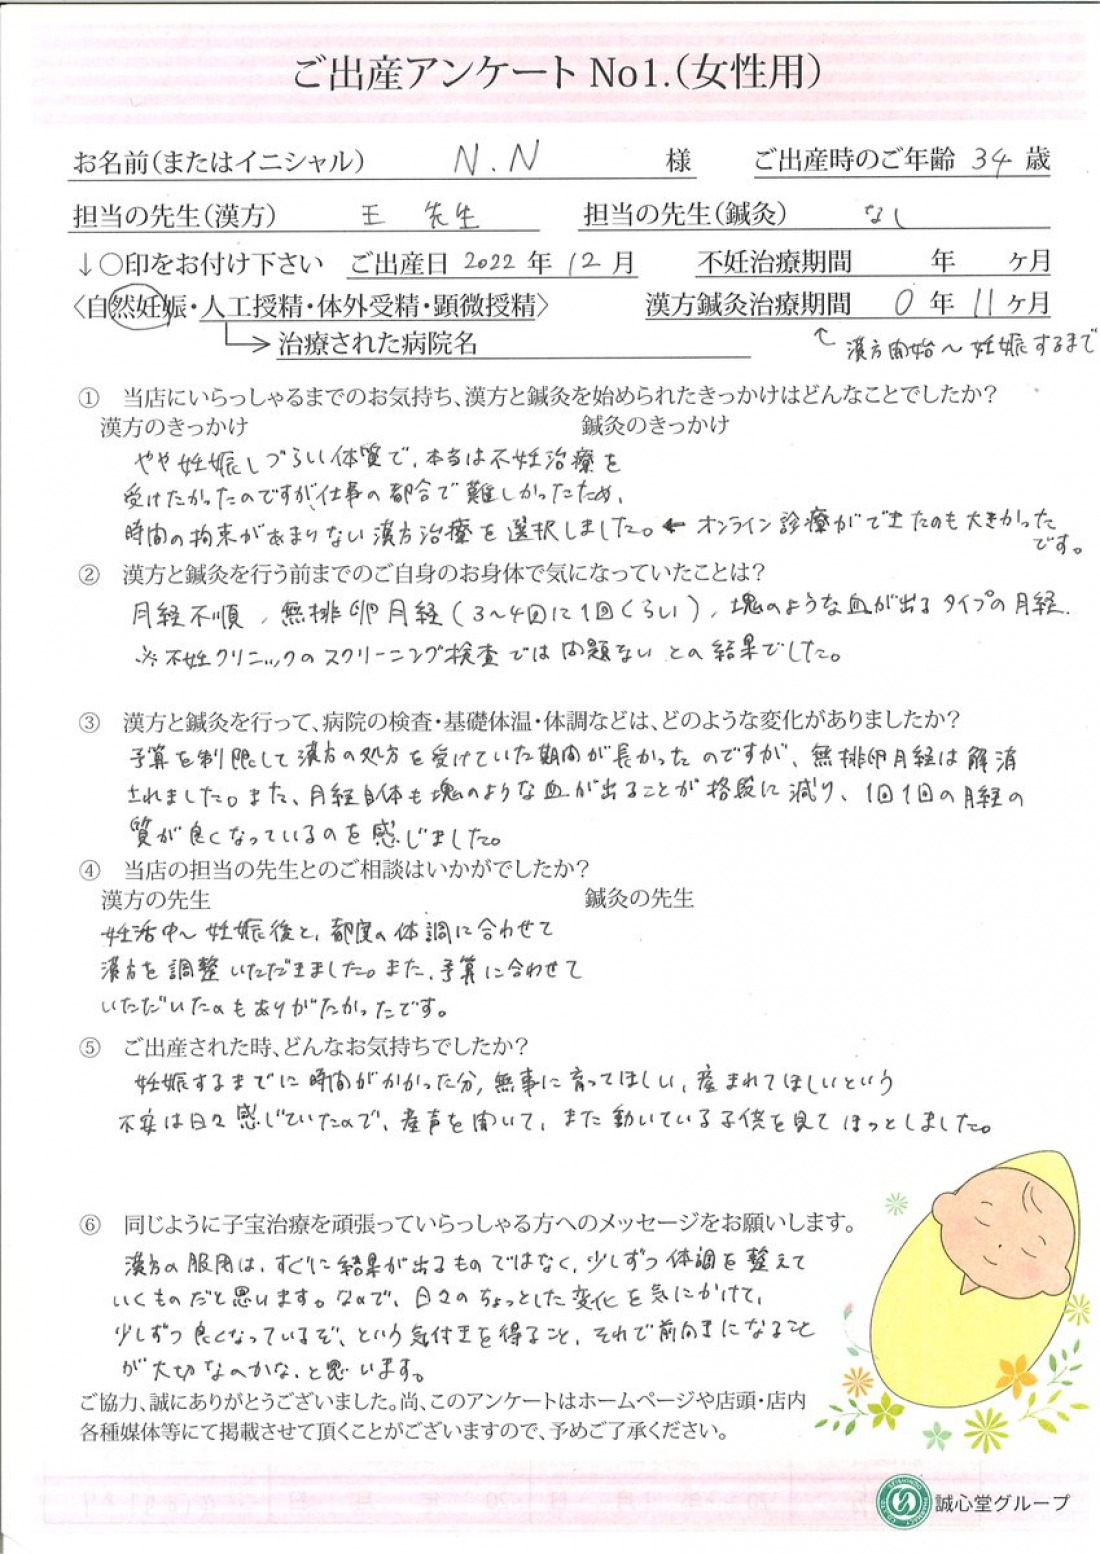 ご出産アンケート No1.(女性用)
お名前(またはイニシャル) N.N 様 ご出産時のご年齢 34 歳
担当の先生(漢方) 王 先生 担当の先生(鍼灸) なし
↓○印をお付け下さい ご出産日 2022 年 12 月 不妊治療期間 年 ヶ月
〈自然妊娠・人工授精・体外受精・顕微授精〉 漢方鍼灸治療期間 0 年 11 ヶ月
治療された病院名 漢方開始〜妊娠するまで
① 当店にいらっしゃるまでのお気持ち、漢方と鍼灸を始められたきっかけはどんなことでしたか?
漢方のきっかけ 鍼灸のきっかけ
やや妊娠しづらい体質で、本当は不妊治療を
受けたかったのですが、仕事の都合で難しかったため、
時間の拘束があまりない漢方治療を選択しました。← オンライン診療ができたのも大きかった
です。
② 漢方と鍼灸を行う前までのご自身のお身体で気になっていたことは?
月経不順、無排卵月経(3〜4回に1回くらい)、塊のような血が出るタイプの月経.
※不妊クリニックのスクリーニング検査では問題ないとの結果でした。
③ 漢方と鍼灸を行って、病院の検査・基礎体温・体調などは、どのような変化がありましたか?
予算を制限して漢方の処方を受けていた期間が長かったのですが、無排卵月経は解消
されました。また、月経自体も塊のような血が出ることが格段に減り、1回1回の月経の
質が良くなっているのを感じました。
④ 当店の担当の先生とのご相談はいかがでしたか?
漢方の先生 鍼灸の先生
妊活中〜妊娠後と、都度の体調に合わせて
漢方を調整いただきました。また、予算に合わせて
いただいたのもありがたかったです。
⑤ ご出産された時、どんなお気持ちでしたか?
妊娠するまでに時間がかかった分、無事に育ってほしい、産まれてほしいという
不安は日々感じていたので、産声を聞いて、また動いている子供を見てほっとしました。
⑥ 同じように子宝治療を頑張っていらっしゃる方へのメッセージをお願いします。
漢方の服用は、すぐに結果が出るものではなく、少しずつ体調を整えて
いくものだと思います。なので、日々のちょっとした変化を気にかけて、
少しずつ良くなっているぞ、という気付きを得ること、それで前向きになること
が大切なのかな、と思います。
ご協力、誠にありがとうございました。尚、このアンケートはホームページや店頭・店内
各種媒体等にて掲載させて頂くことがございますので、予めご了承ください。
誠心堂グループ